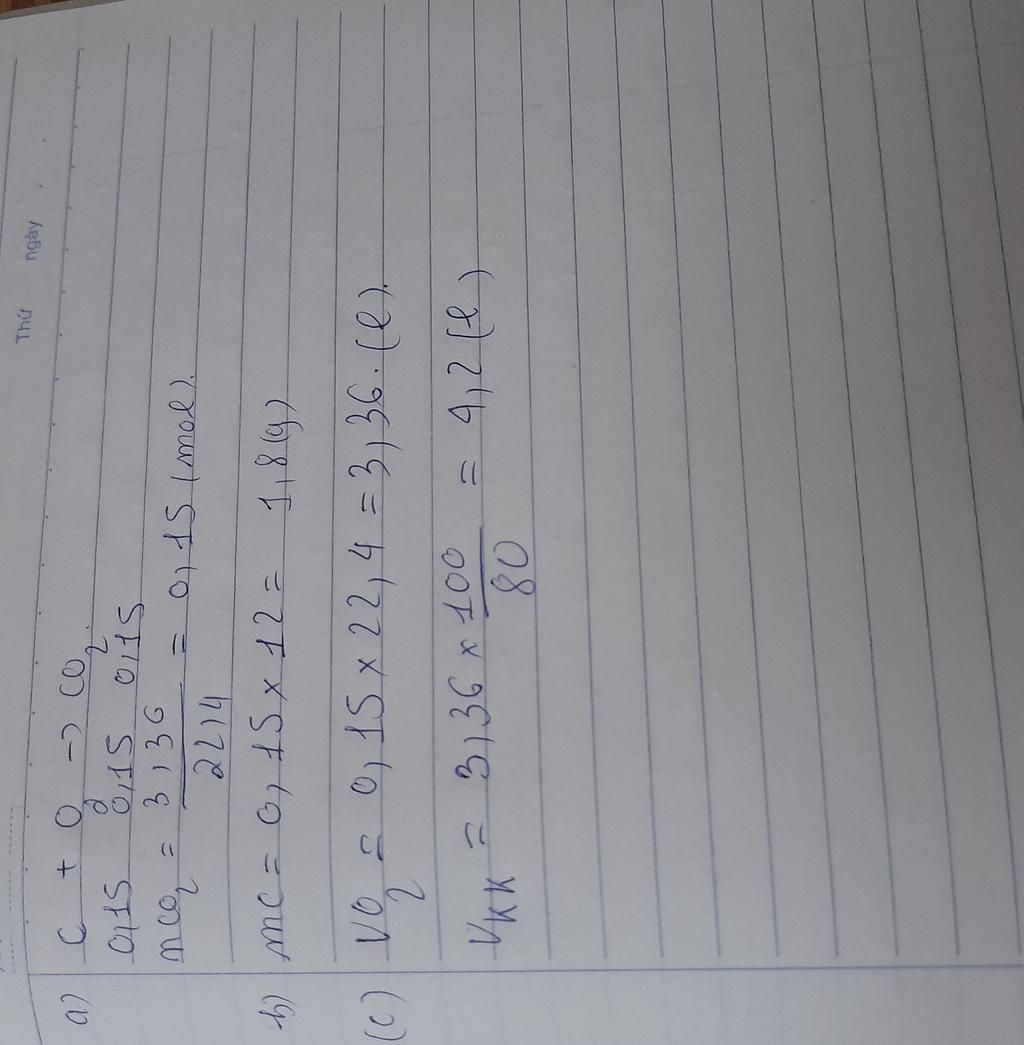 Thứ ngày
a) C + O2 → CO2.
0,15 0,15 0,15
nCO2 = 3,36/22,4 = 0,15 (mol).
b) mC = 0,15 x 12 = 1,8 (g)
(c) VO2 = 0,15 x 22,4 = 3,36. (l).
VKK = 3,36 x 100/80 = 4,2 (l)